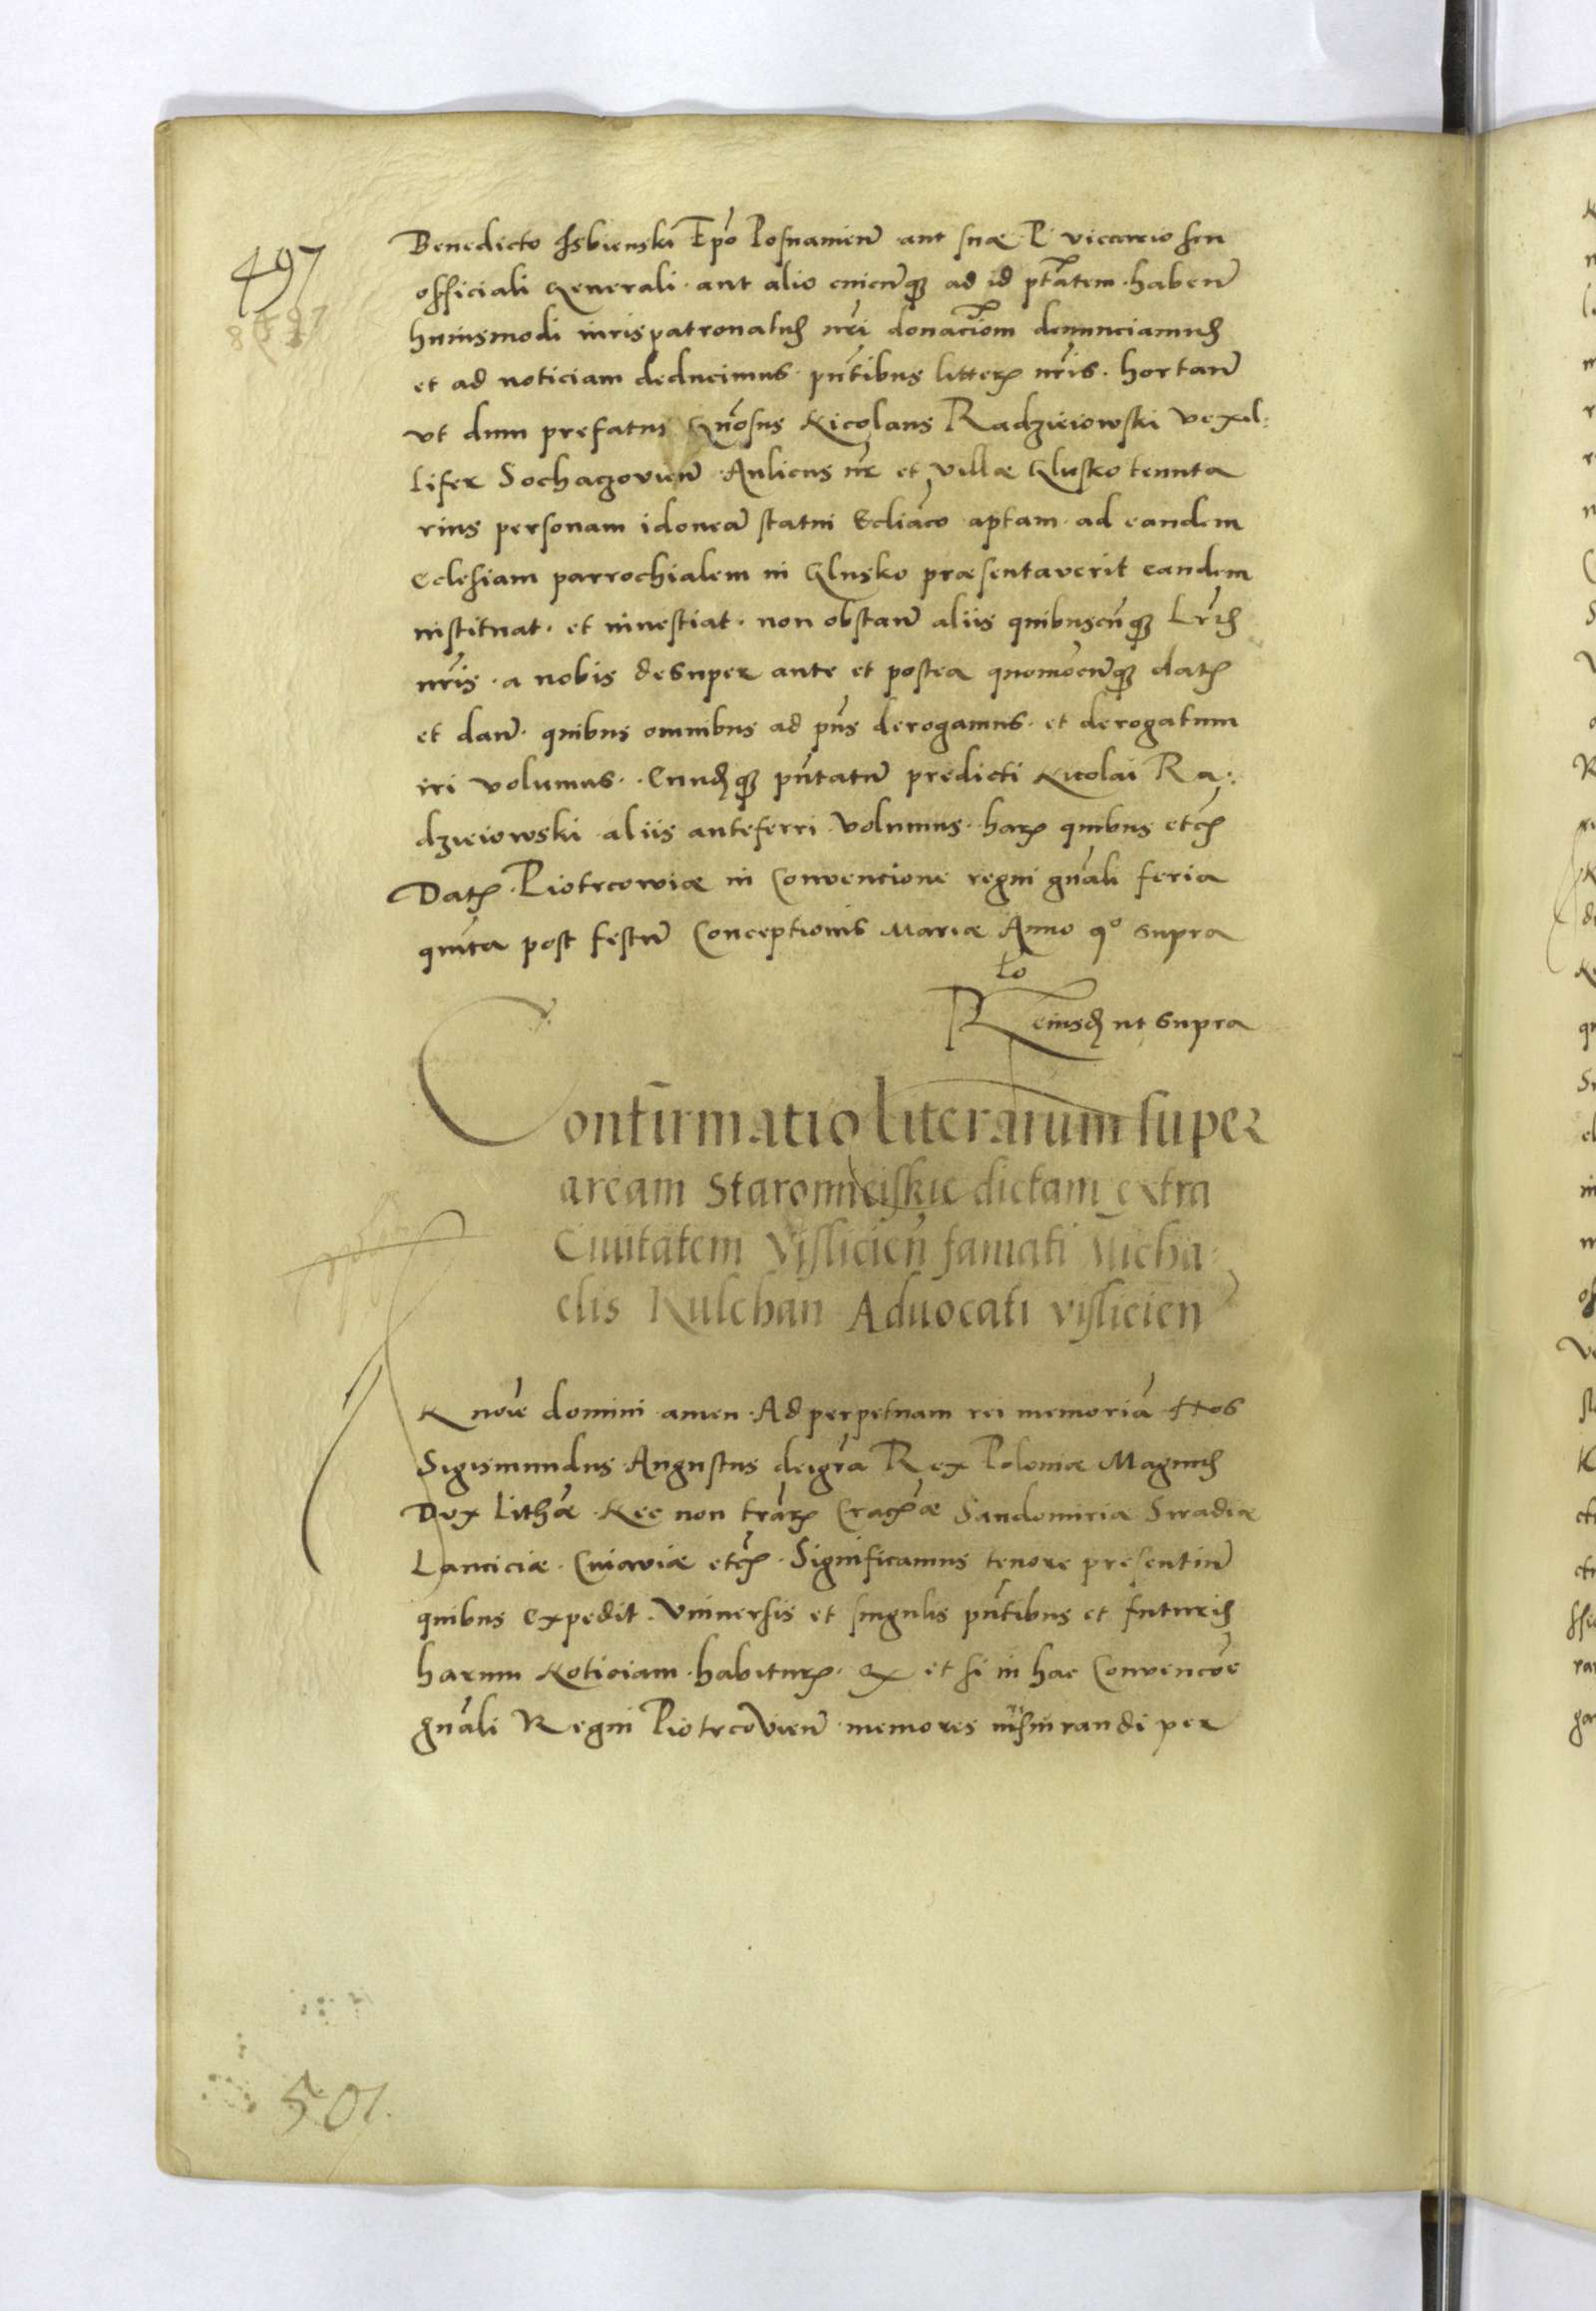 497
Benedicto Isbienski Epō Posnanien̄ aut suae P. viccario seu
officiali generali aut alio cuicunq̄ ad id ptātem haben̄
huiusmodi iurispatronatus nr̄i donaciōm denunciamus
et ad noticiam deducimus pn̄tibus litterꝝ nr̄is. hortan̄
vt dum prefatus Gn̄osus Nicolaus Radzieiowski vexil:
lifer Sochaczovien̄ Aulicus nr̄ et villae Glusko tenuta
rius personam idoneā statui Eccliāco aptam ad eandem
Eclesiam parrochialem in Glusko praesentaverit eandem
instituat. et investiat. non obstan̄ aliis quibuscūnq̄ Lr̄is
nr̄is. a nobis desuper ante et postea quomōcunq̄ datꝝ
et dan̄. quibus omnibus ad pn̄s derogamus. et derogatum
iri volumus. Eiusq̄ pn̄tatū predicti Nicolai Ra:
dzieiowski aliis anteferri volumus. harꝝ quibus etcꝝ
Datꝝ Piotrcowiae in Convencione regni gn̄ali feria
quinta post festū Conceptionis Mariae Anno qº supra
Rº eiusdꝫ ut supra
Confirmatio literarum super
aream Staromieiskie dictam extra
Ciuitatem Vislicien̄ famati Micha:
elis Kulchan Aduocati vislicien̄
N noīe domini amen. Ad perpetuam rei memoriā Nos
Sigismundus Augustus dei gr̄a Rex Poloniae Magnus
Dux Lithāe Nec non trārꝝ Cracꝝae Sandomiriae Siradiae
Lanciciae. Cuiaviae etcꝝ. Significamus tenore presentiū
quibus expedit. Vniuersis et singulis pn̄tibus et futuris
harum Noticiam habiturꝝ. Qꝫ et si in hac Convencōe
gn̄ali Regni Piotrcovien̄ memores iurisiurandi per
501.